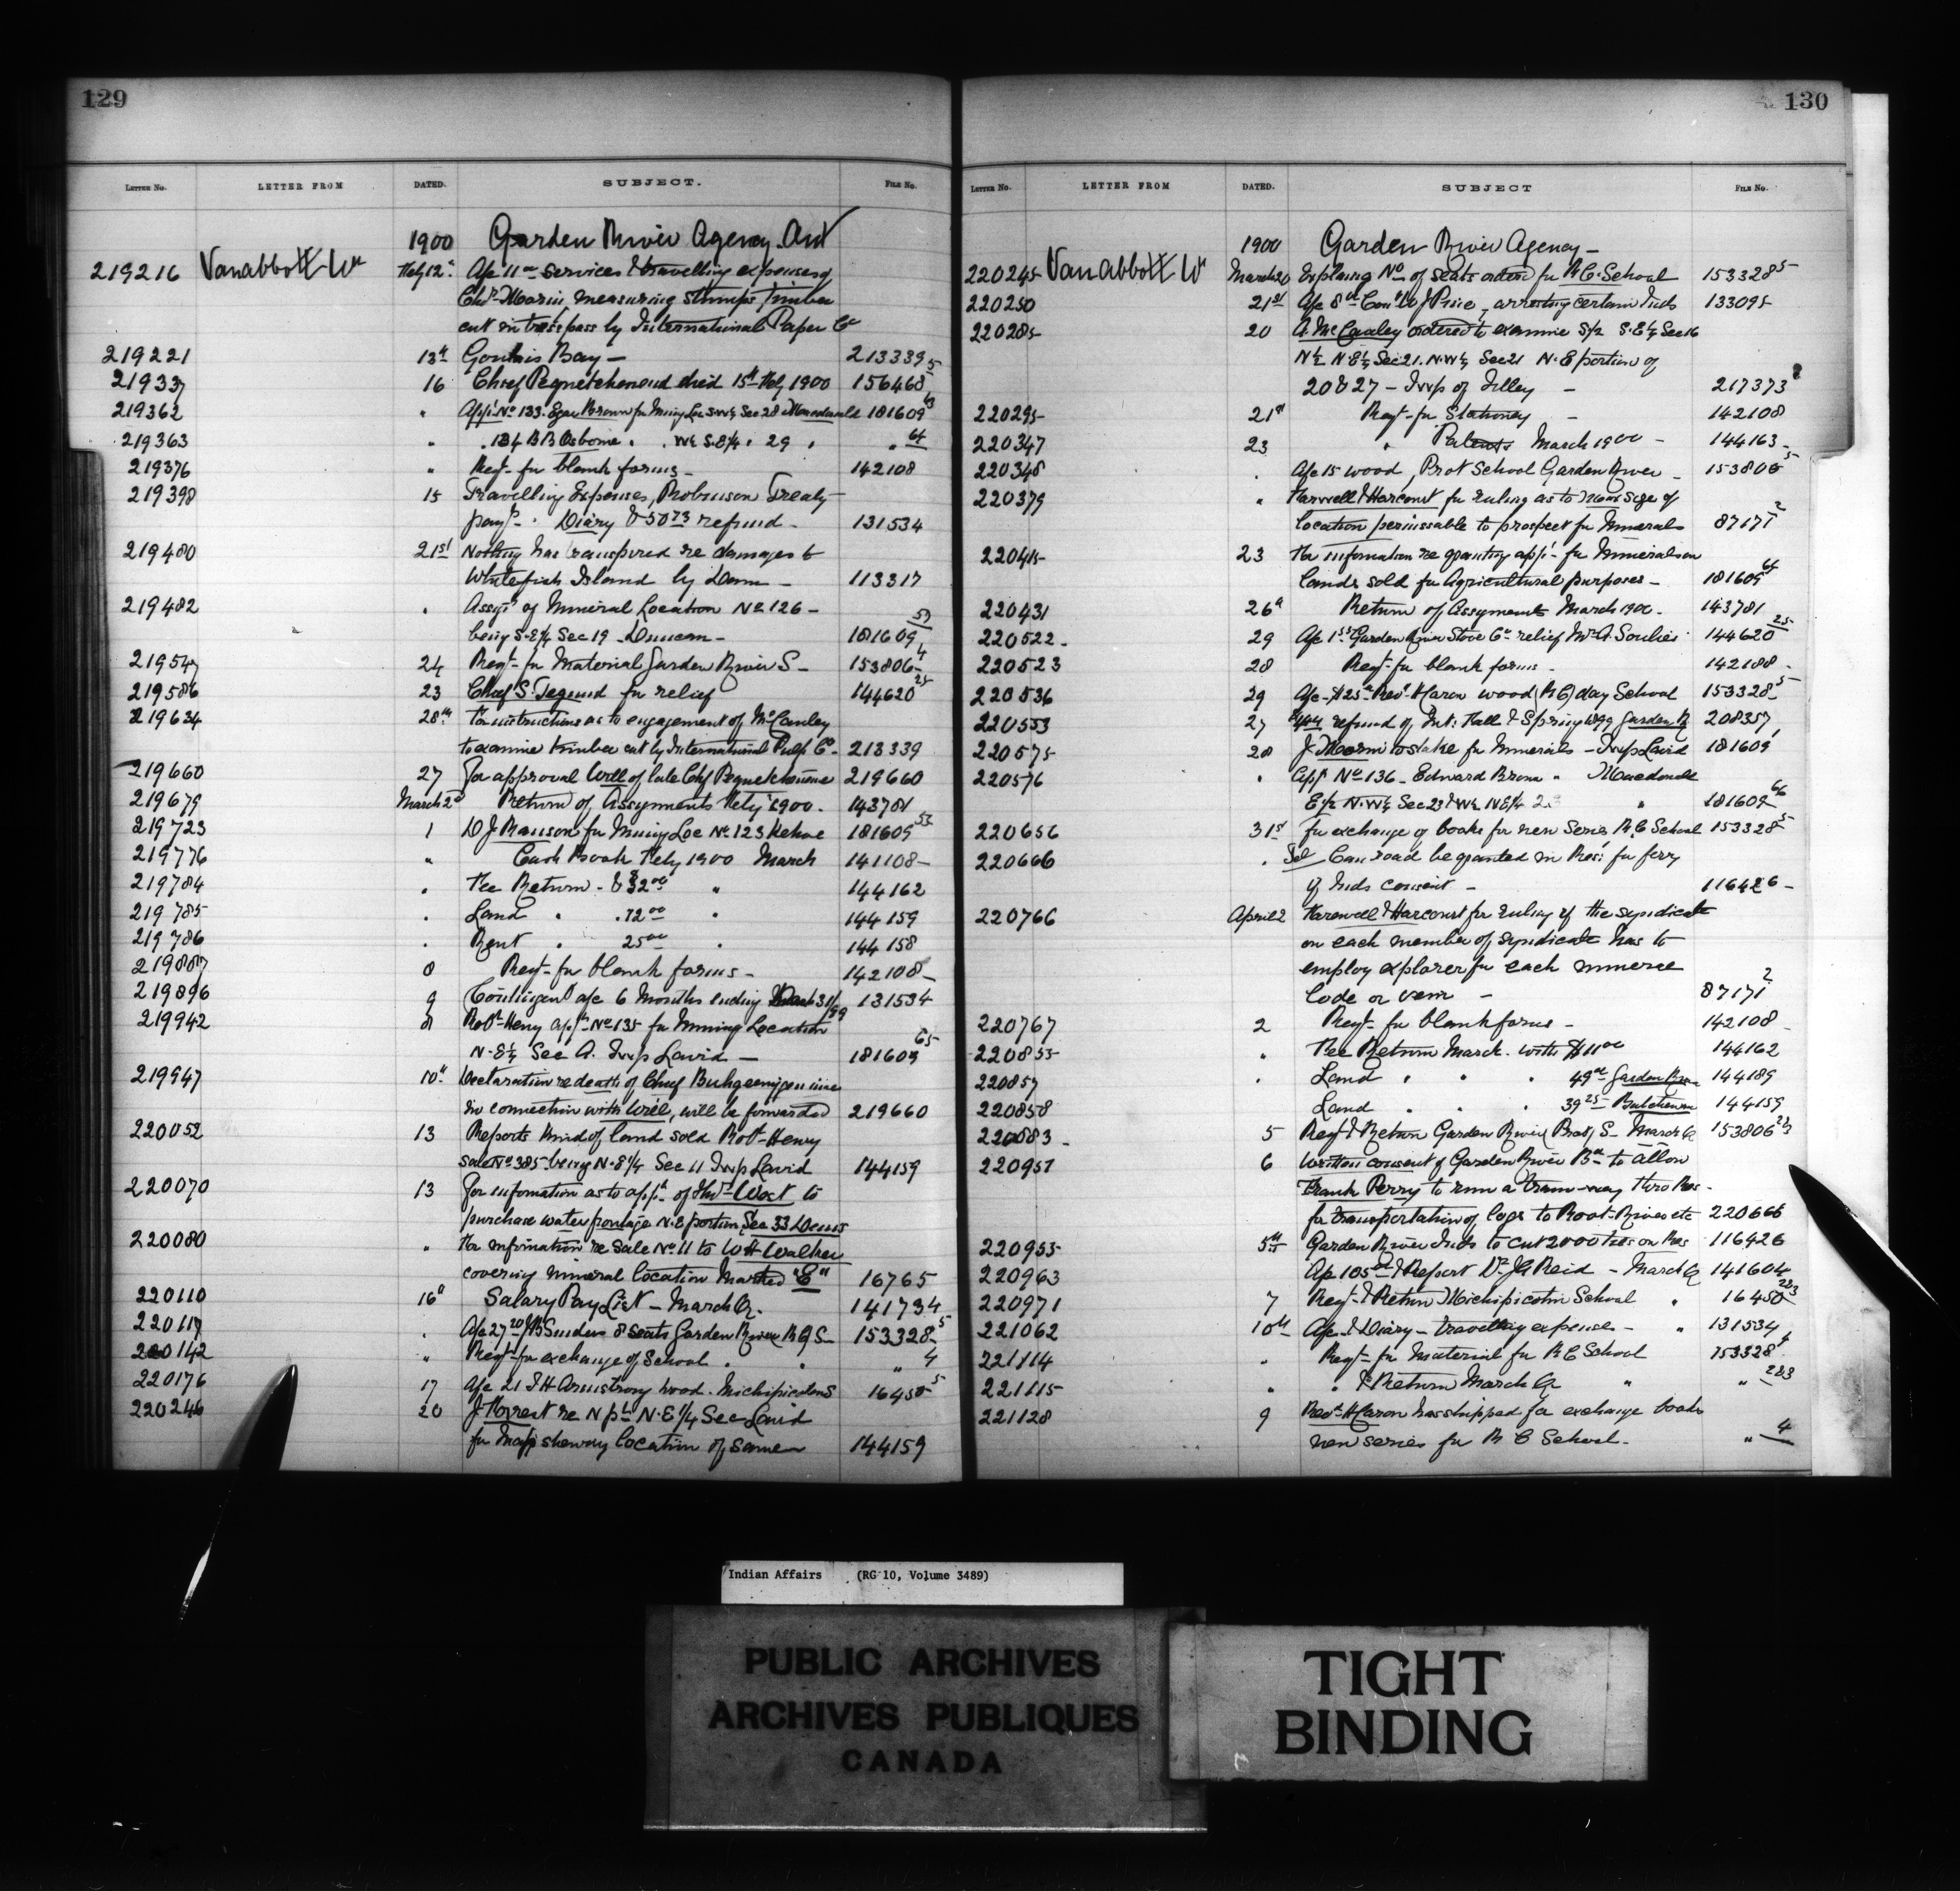 129
LETTER NO. LETTER FROM DATED. SUBJECT. FILE NO.
1900 Garden River Agency. Ont
219216 Vanabbott Wm Feby 12" A/c 11 00 services & travelling expenses of
Chr. Moarin, measuring stumps, timber
cut in trespass by International Paper Co
219221 13th Goulais Bay — 213339
21933 16 Chief Pequetchenous died 15th Feby 1900 156468 5
219362 " Appn No 133. Brown for Mining Loc SW¼ Sec 28 Macdonald 181609 63
219363 " " 134 B B Osborne " " W½ S.E¼ " 29 " " 64
219376 " Reqt- for blank forms — 142108
219398 15 Travelling Expenses, Robinson Treaty
paymts " Diary & 50 73 refund — 131534
219480 21st Nothing has transpired re damages to
Whitefish Island by Dam — 113317
219482 " Assgt of Mineral Location No 126 —
being S.E¼ Sec 19 — Duncan — 181609 57
21954 24 Reqt- for Material Garden River S — 153806 4
219586 23 Chief S. Tegund for relief 144620 25
219634 28th For instructions as to engagement of McCauley
to examine timber cut by International Pulp Co — 213339
219660 27 For approval Will of late Chf 219660
219679 March 2d Return of Assignments Feby 1900. 143781
219723 1 D J Ranson for Mining Loc No 123 Kehoe 181609 53
219776 " Cash Book Feby 1900 March 141108 —
219784 " Fee Return — & $32 00 " 144162
219785 " Land " " 72 00 " 144159
219786 " Rent " 25 00 " 144158
219887 8 Reqt- for blank forms — 142108 —
219896 9 Contingent a/c 6 Months ending March 31/99 131534
219942 8 Robt Henry appn No 135 for Mining Location
N.E¼ Sec A. Twp Laird — 181609 65
219947 10th Declaration re death of Chief
in connection with Will, will be forwarded 219660
220052 13 Reports kind of land sold Robt- Henry
sale No 385 being N.E¼ Sec 11 Twp Laird 144159
220070 13 For information as to appn of Thos West to
purchase water frontage N.E portion Sec 33 Dennis
220080 " For information re sale No 11 to W H Walker
covering mineral location Marked "E" 16765
220110 16th Salary Pay List — March Qr. 141734
220117 " A/c 27 20 Sanders 8 seats Garden River R C S — 153328 5
220142 " Reqt- for exchange of School " " " 4
220176 17 A/c 21 T H Armstrong wood. Michipicoten S 16450 5
220246 20 J Forrest re N pt N.E¼ Sec Laird
for map shewing location of same 144159
130
LETTER NO. LETTER FROM DATED. SUBJECT FILE NO.
1900 Garden River Agency —
220245 Vanabbott W March 20 Explaing No of seats ordered for R C. School 153328 5
220250 21st A/c 8 00 Conl W J Price, arresting certain Inds 133095
220285 20 A. McCauley ordered to examine S½ S.E¼ Sec 16
N½ N.E¼ Sec 21. N.W¼ Sec 21 N.E portion of
20 & 27 — Twp of Tilley — 217373
220295 21st Reqt- for Stationery — 142108
220347 23 " Patents March 1900 — 144163 —
220348 " A/c 15 wood, Prot School Garden River — 153806 5
220379 " Farwell & Harcourt for ruling as to max size of
location permissable to prospect for Minerals 87171 2
220415 23 For information re granting appn for Minerals on
lands sold for Agricultural purposes — 181609 64
220431 26th Return of Assignments March 1900 — 143781
220522 29 A/c Garden River Store Co relief Mrs A. Soulier 144620 25
220523 28 Reqt- for blank forms — 142108 —
220536 29 A/c $25 00 Revd H Caron wood (R C) day School 153328 5
220553 27 refund of Int: Hall & Spring Garden R 208357
220575 28 J. Moarin to stake for Minerals — Twp Laird 181609
220576 " Appn No 136 — Edward Brown " Macdonald
E½ N.W¼ Sec 23 & W½ N.E¼ 23 " 181609 66
220656 31st for exchange of books for new series R. C School 153328 5
220666 " Tel Can road be granted in Res: for ferry
if Inds consent — 116426 —
220766 April 2 Farewell & Harcourt for ruling if the syndicate
or each member of syndicate has to
employ explorer for each mineral
lode or vein — 87171 2
220767 2 Reqt- for blank forms — 142108
220855 " Fee Return March. with $11 00 144162
220857 " Land " " " 49 00 Garden River 144189
220858 Land " " " 39 25 Batchewan 144159
220883 — 5 Reqt & Return Garden River Prot S — March Qr 153806 2/3
220951 6 Written consent of Garden River Bd to allow
Frank Perry to run a tram-way thro Res —
for transportation of logs to Root River etc 220666
220955 5th Garden River Inds to cut 2000 ties on Res 116426
220963 A/c 105 00 & Report Dr J A Reid — March Qr 141604
220971 7 Reqt- & Return Michipicoten School " 16450 2&3
221062 10th A/c & Diary — travelling expense — " 131534
221114 " Reqt- for Material for R C School 153328 4
221115 " " & Return March Qr " " 2&3
221128 9 Revd H Caron has shipped for exchange books
new series for R C School — " 4
Indian Affairs (RG 10, Volume 3489)
PUBLIC ARCHIVES
ARCHIVES PUBLIQUES
CANADA
TIGHT
BINDING